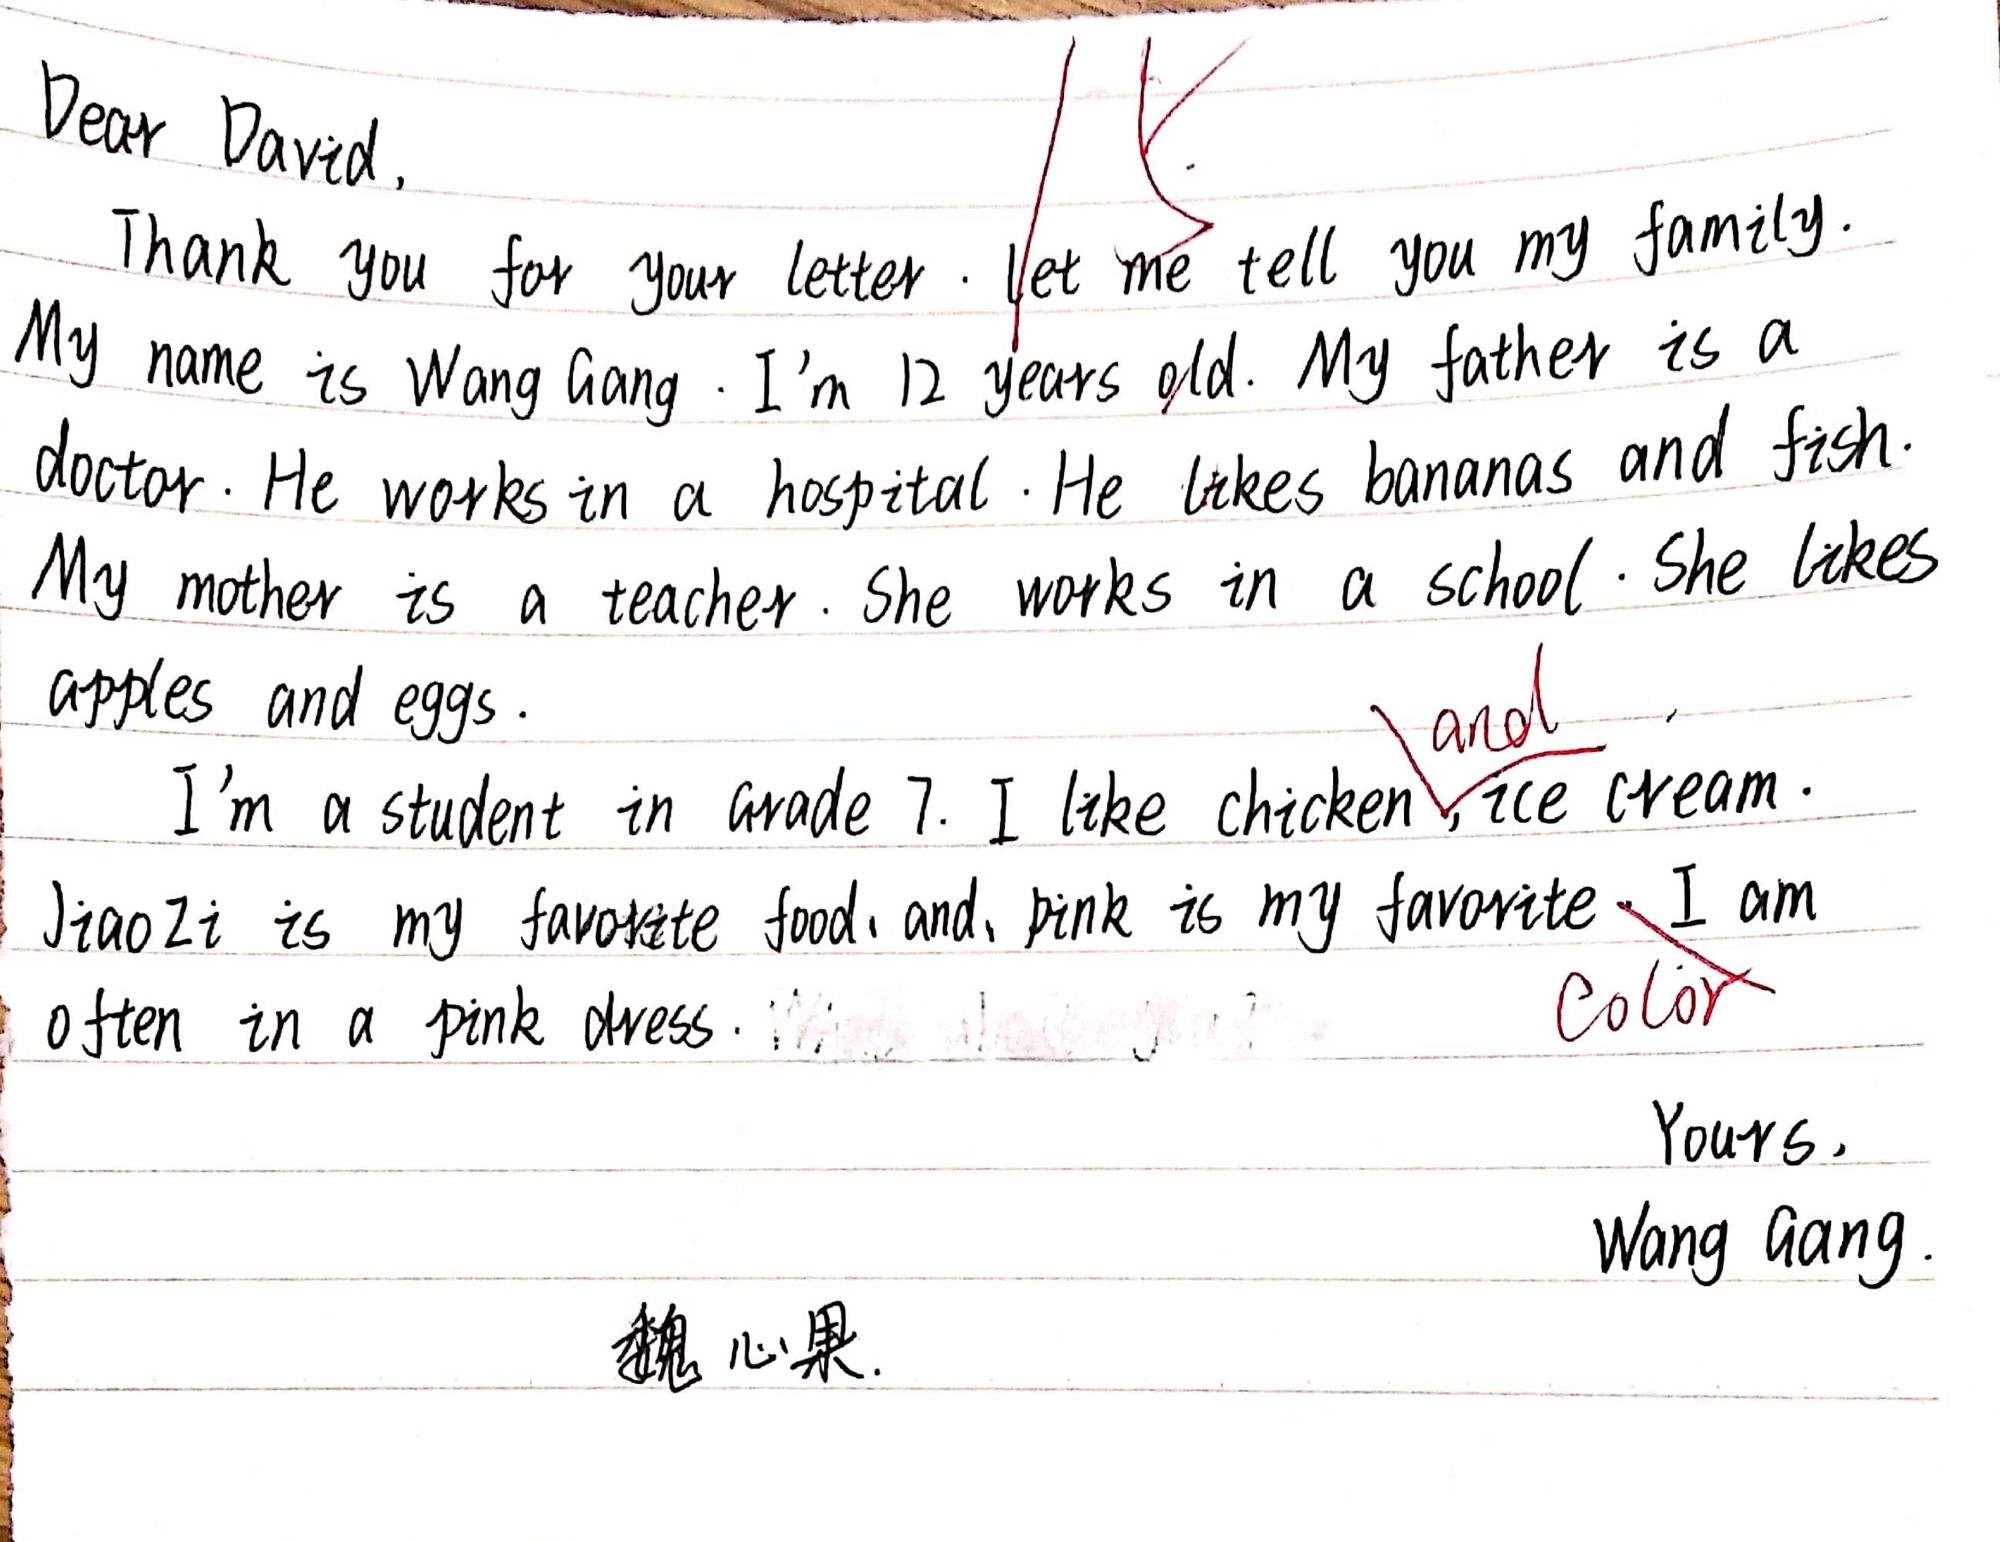 Dear David,
Thank you for your letter. Let me tell you my family.
My name is Wang Gang. I'm 12 years old. My father is a
doctor. He works in a hospital. He likes bananas and fish.
My mother is a teacher. She works in a school. She likes
apples and eggs.
and
I'm a student in Grade 7. I like chicken, ice cream.
Jiaozi is my favorite food, and, pink is my favorite. I am
color
often in a pink dress.
Yours,
Wang Gang.
魏心果.